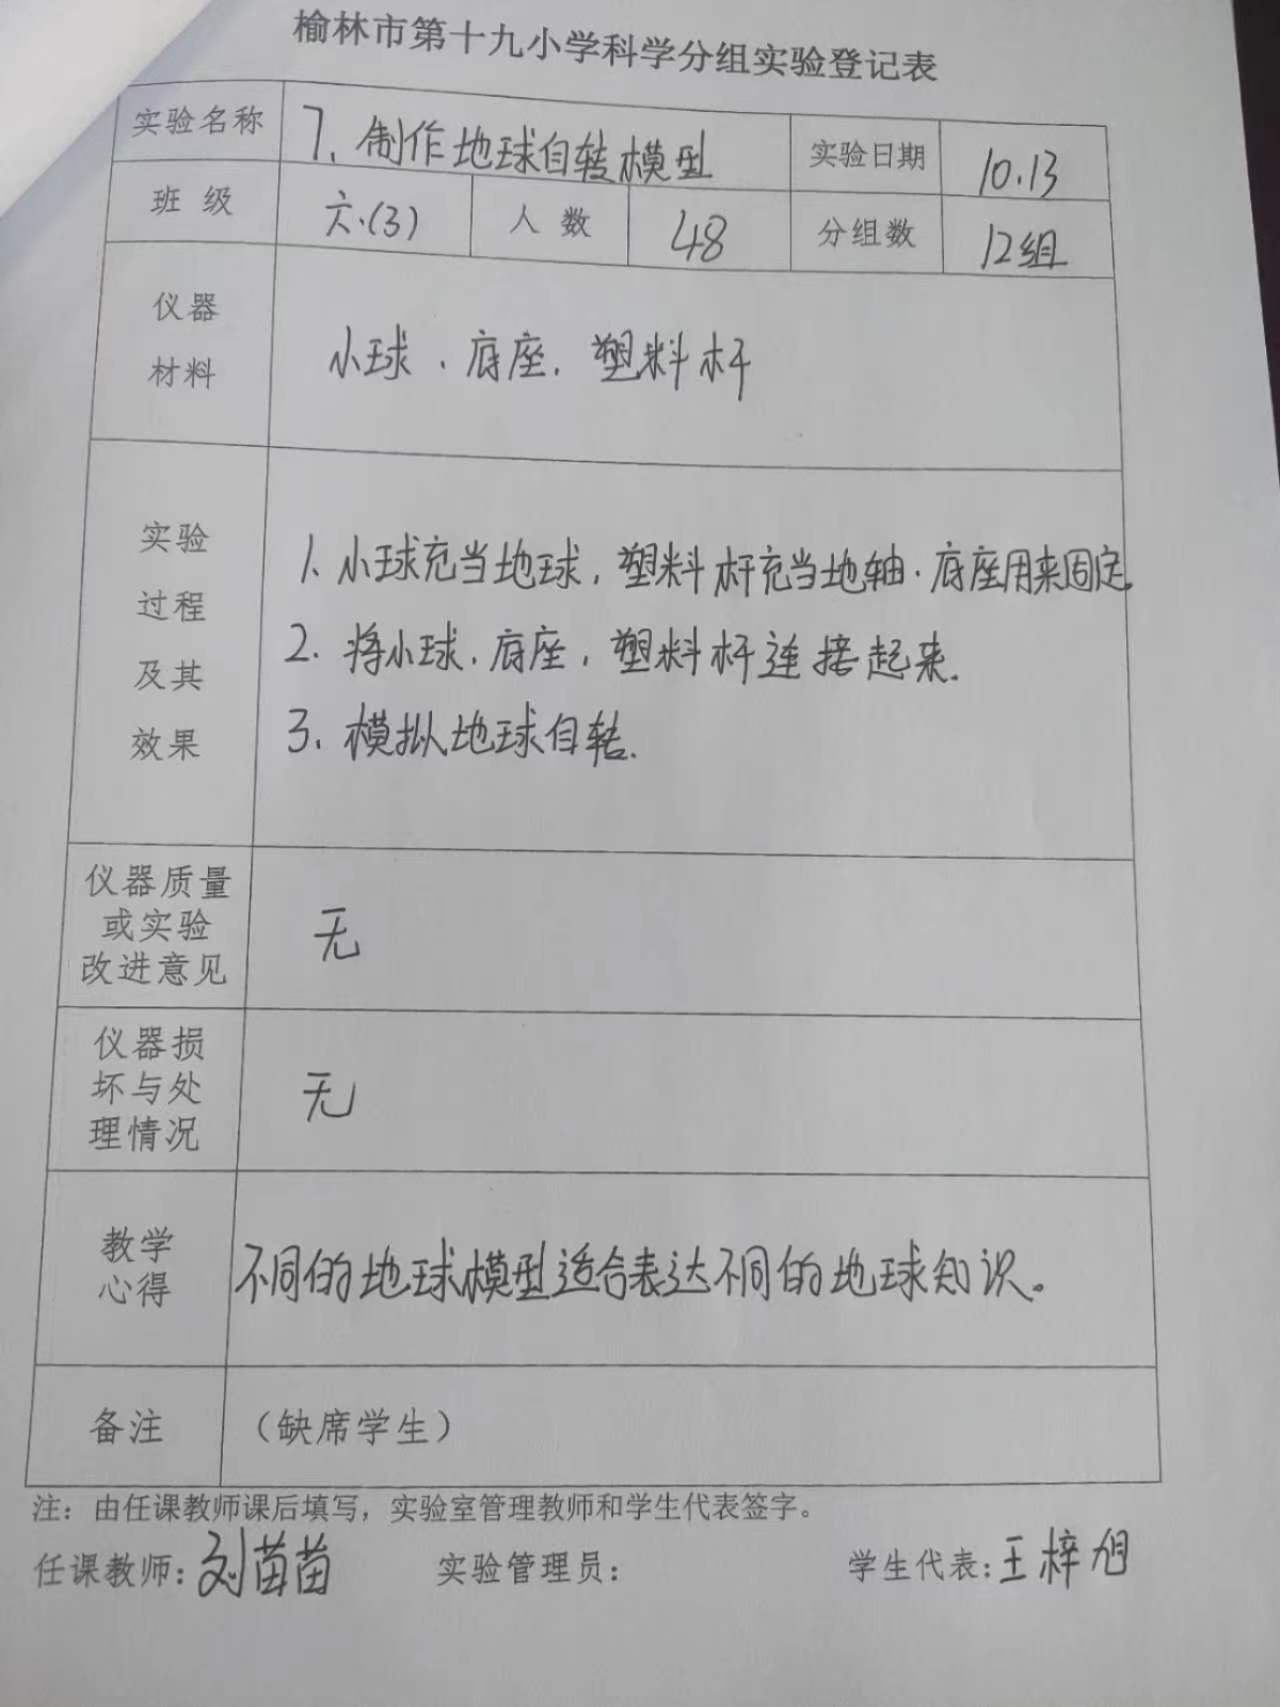 榆林市第十九小学科学分组实验登记表
实验名称 7、制作地球自转模型 实验日期 10.13
班 级 六.(3) 人 数 48 分组数 12组
仪器
材料
小球、底座、塑料杆
实验
过程
及其
效果
1、小球充当地球,塑料杆充当地轴.底座用来固定.
2.将小球、底座,塑料杆连接起来.
3、模拟地球自转.
仪器质量
或实验
改进意见
无
仪器损
坏与处
理情况
无
教学
心得
不同的地球模型适合表达不同的地球知识。
备注 （缺席学生）
注：由任课教师课后填写，实验室管理教师和学生代表签字。
任课教师:刘苗苗 实验管理员： 学生代表:王梓旭